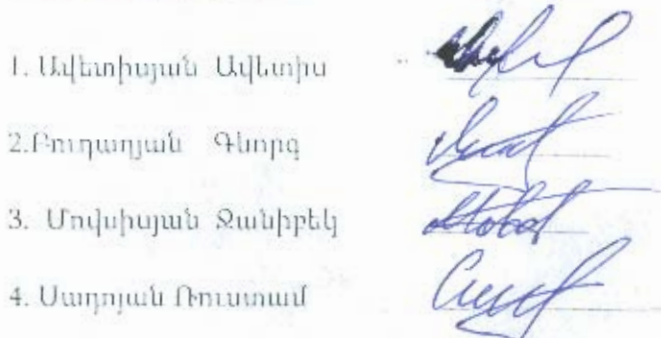 1. Ավետիսյան Ավետիս
2.Բուդաղյան Գևորգ
3. Մովսիսյան Ջանիբեկ
4. Սադոյան Ռուստամ